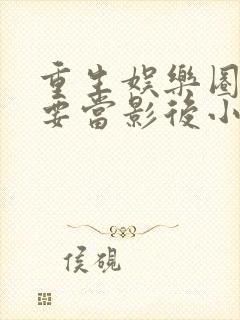 重生娛樂圈
要當影後小
侯硯